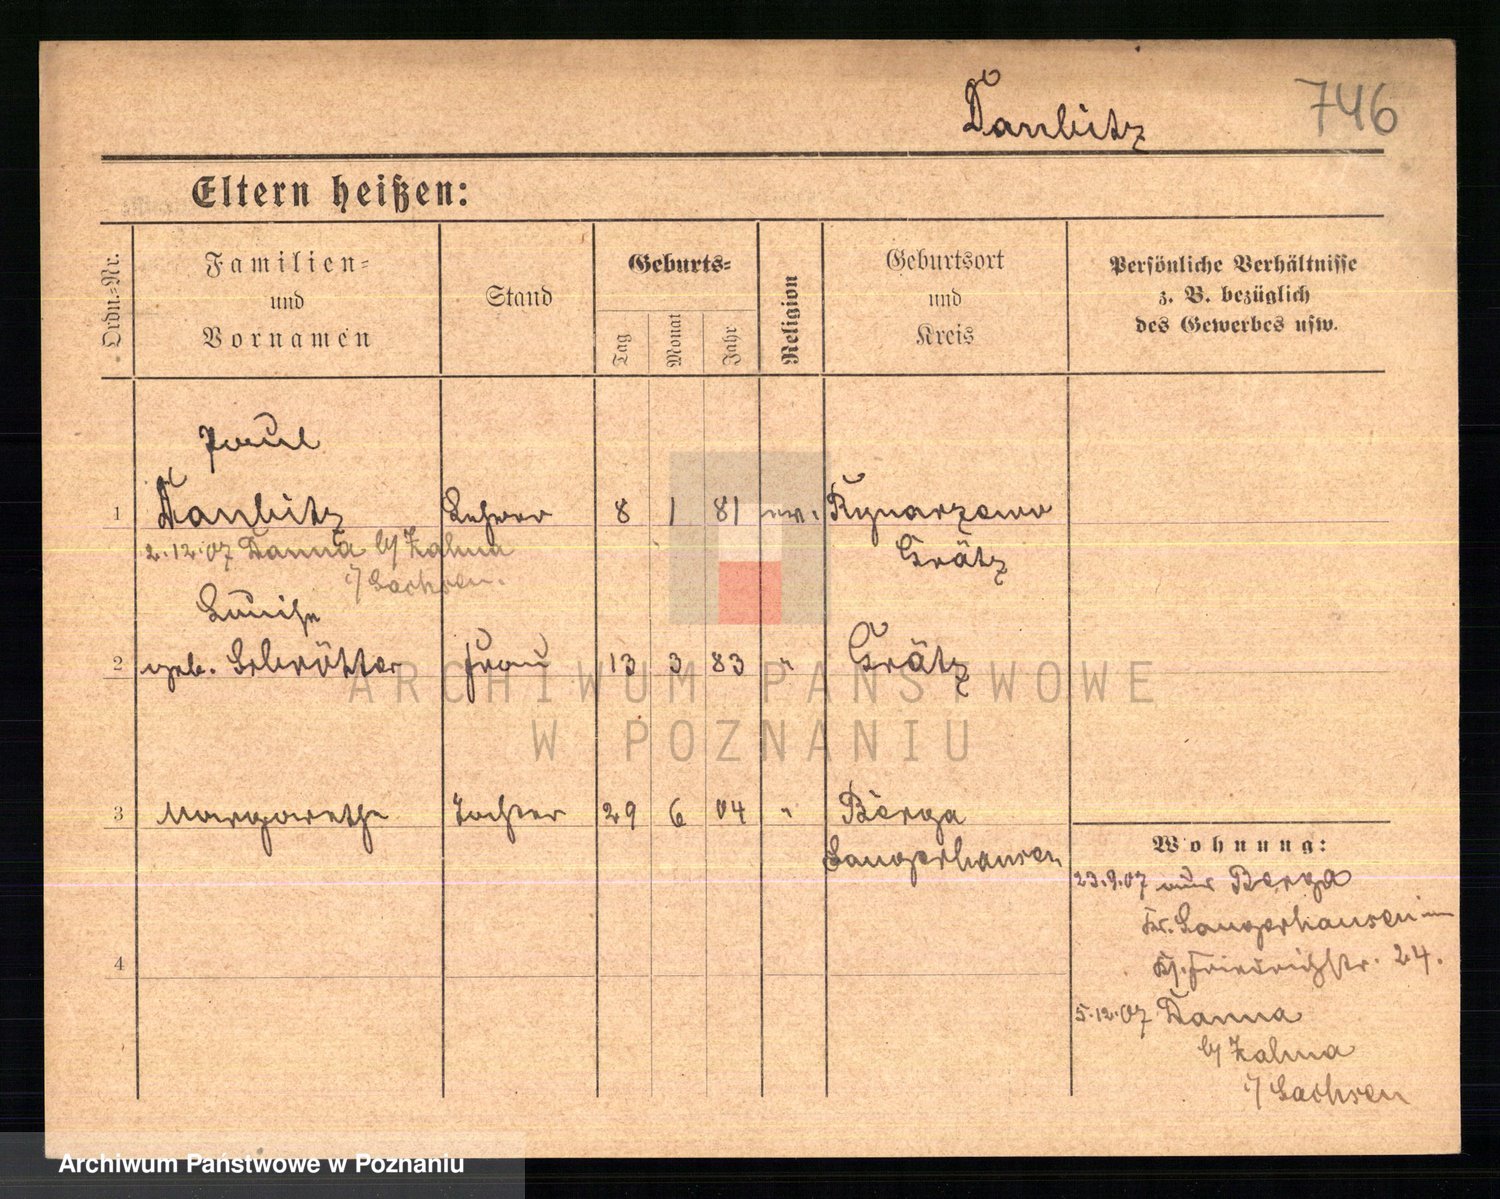 Taubitz 746
Eltern heißen:
Ordn.-Nr.
Familien-
und
Vornamen
Stand
Geburts-
Tag
Monat
Jahr
Religion
Geburtsort
und
Kreis
Persönliche Verhältnisse
z. B. bezüglich
des Gewerbes usw.
Paul
1 Taubitz Lehrer 8 1 81 ev. Rynarzewo
Grätz
2.12.07 Tanna b/ Zalma
i/ Sachsen.
Luise
2 geb. Schrötter Frau 13 3 83 " Grätz
3 Margarethe Tochter 29 6 04 " Berga
Sangerhausen
Wohnung:
23.9.07 aus Berga
Kr. Sangerhausen
Friedrichstr. 24.
5.12.07 Tanna
b/ Zalma
i/ Sachsen
4
ARCHIWUM PAŃSTWOWE
W POZNANIU
Archiwum Państwowe w Poznaniu